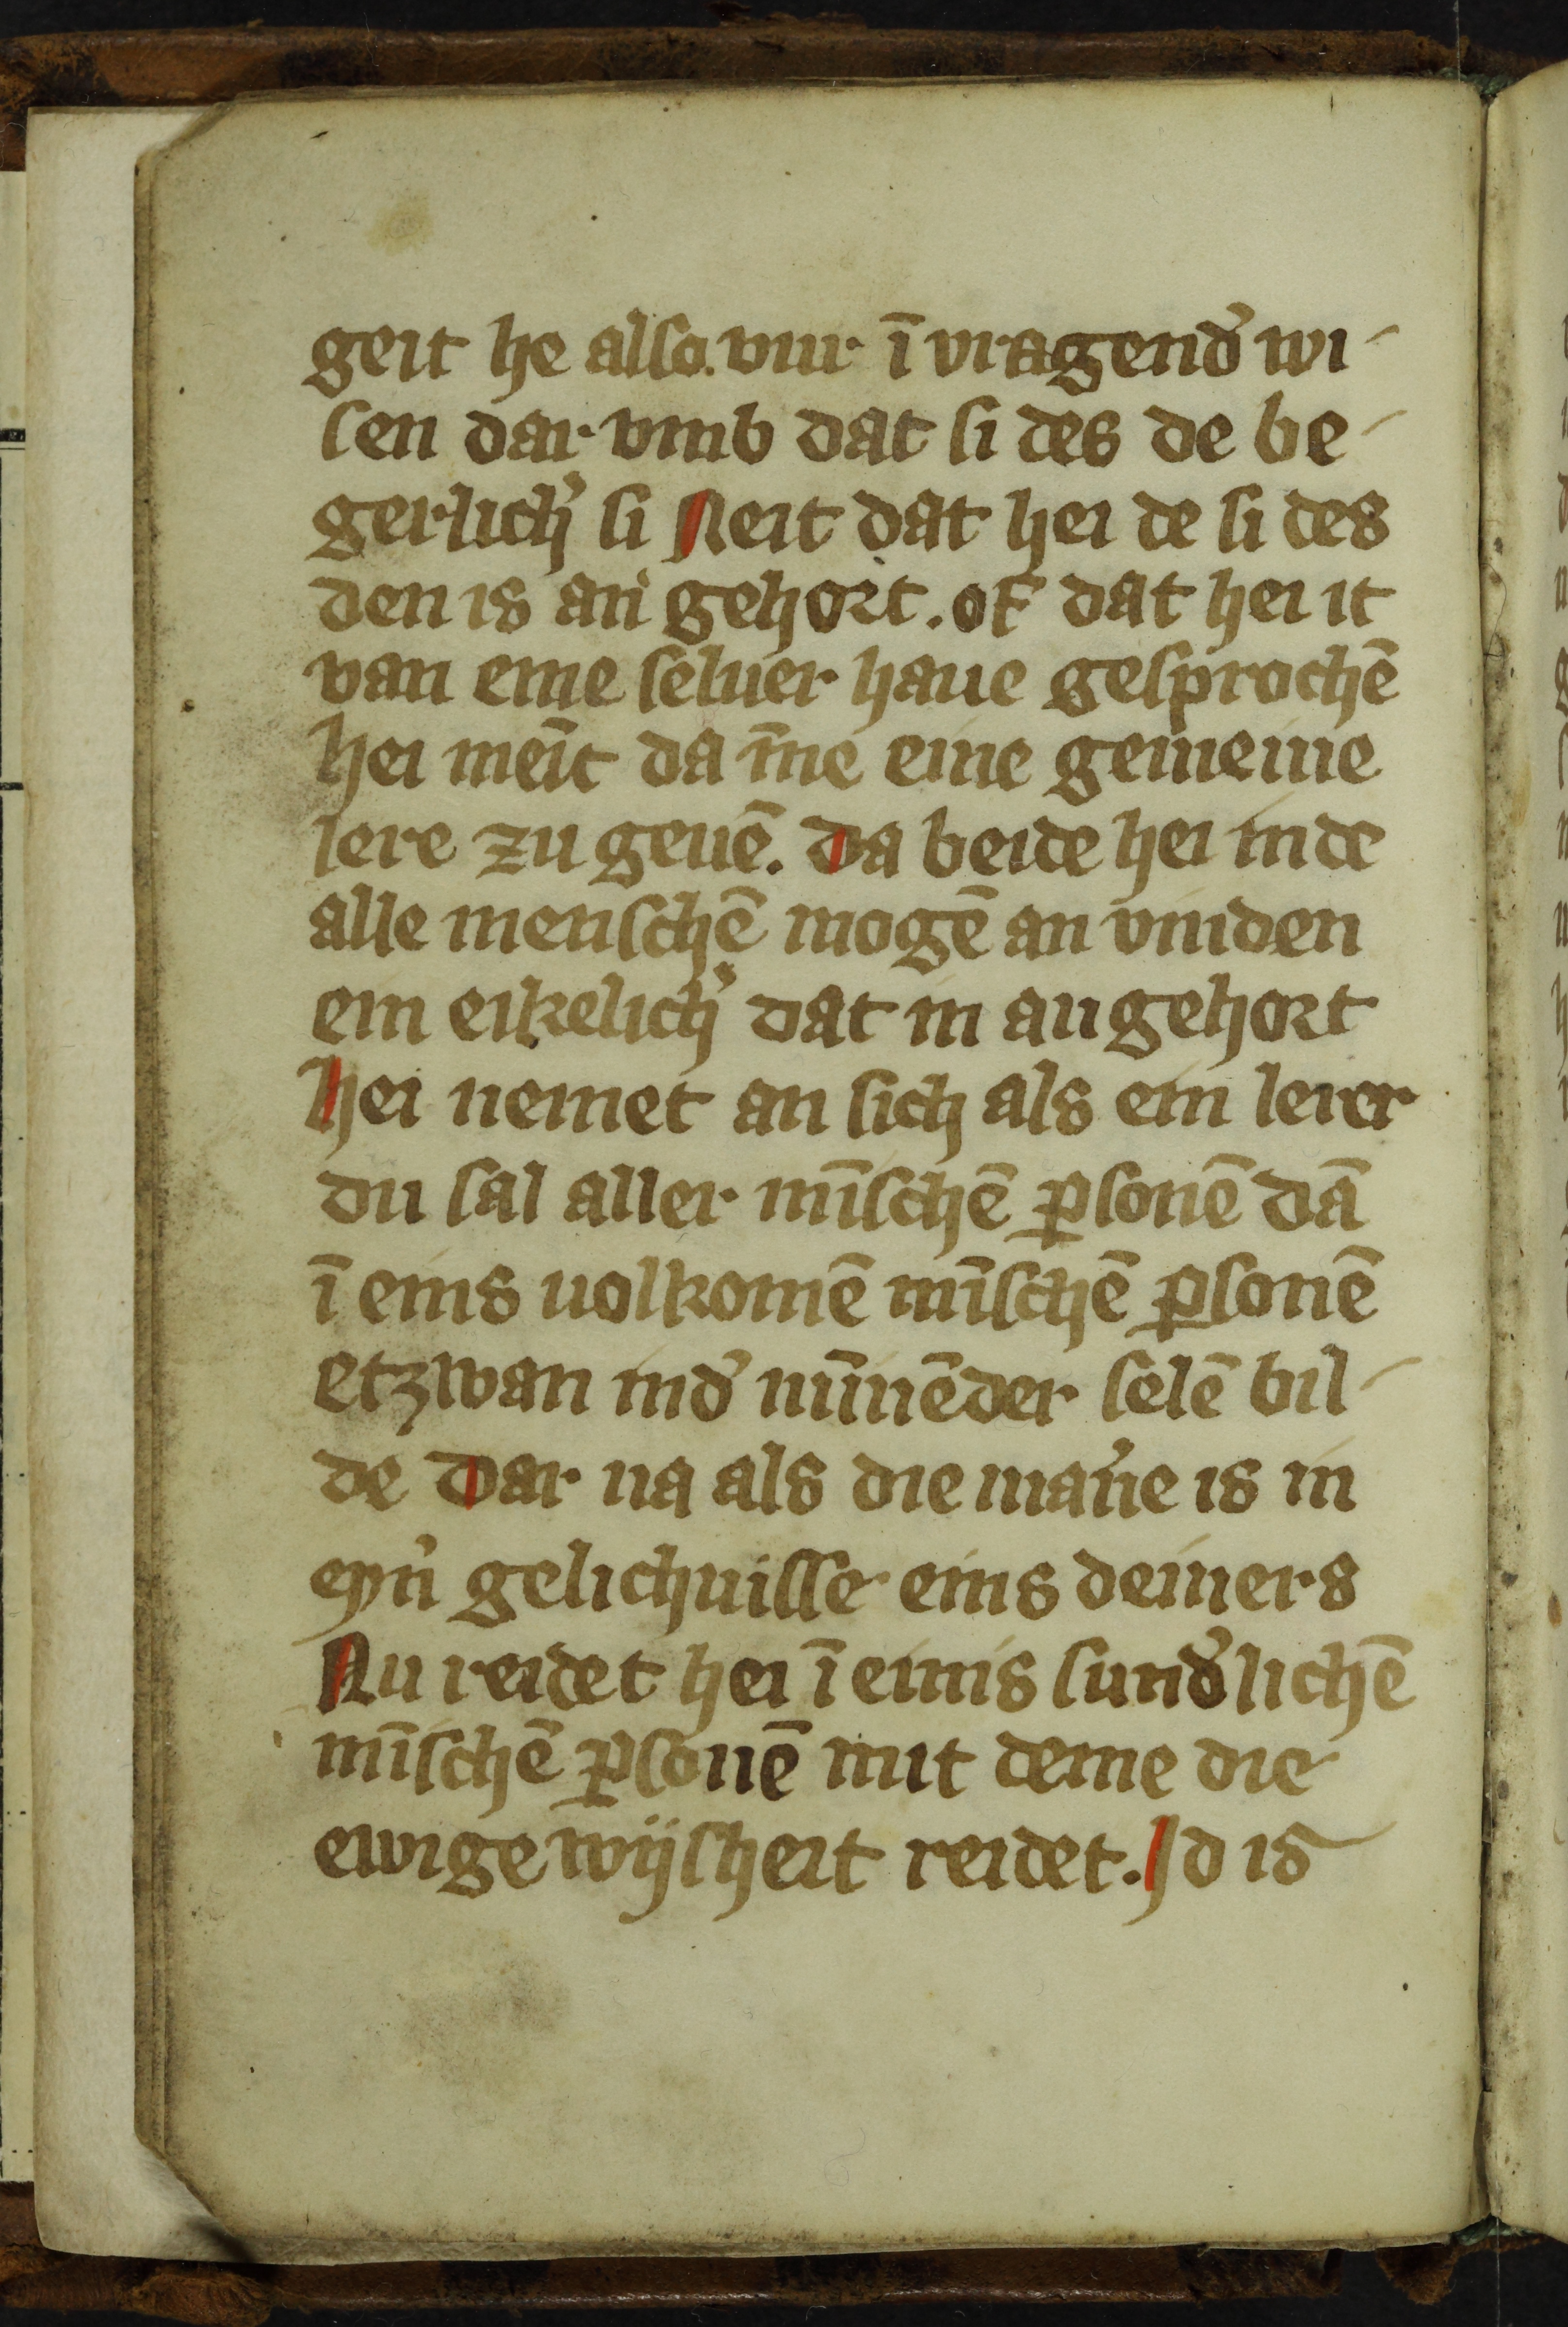 geit he also. vur ī vragend̉ wi-
sen dar vmb dat si des de be-
gerlich̉ si Neit dat hei de si des
den is an gehort. of dat hei it
van eme seluer haue gesprochē
hei meīt da m̄e eine gemeine
lere zu geuē. Da beide hei inde
alle menschē mogē an vinden
ein eikelich̉ dat in an gehort
Hei nemet an sich als ein lerer
du sal aller mīschē ꝑsonē dā
ī eins uolkomē mīschē ꝑsonē
etzwan ind̉ mīnēder selē bil-
de Dar na als die mat̉ie is in
eyn̉ gelichnisse eins deiners
Nu reidet hei ī einis sund̉lichē
mīschē ꝑsonē mit deme die
ewige wijsheit reidet. Jd is